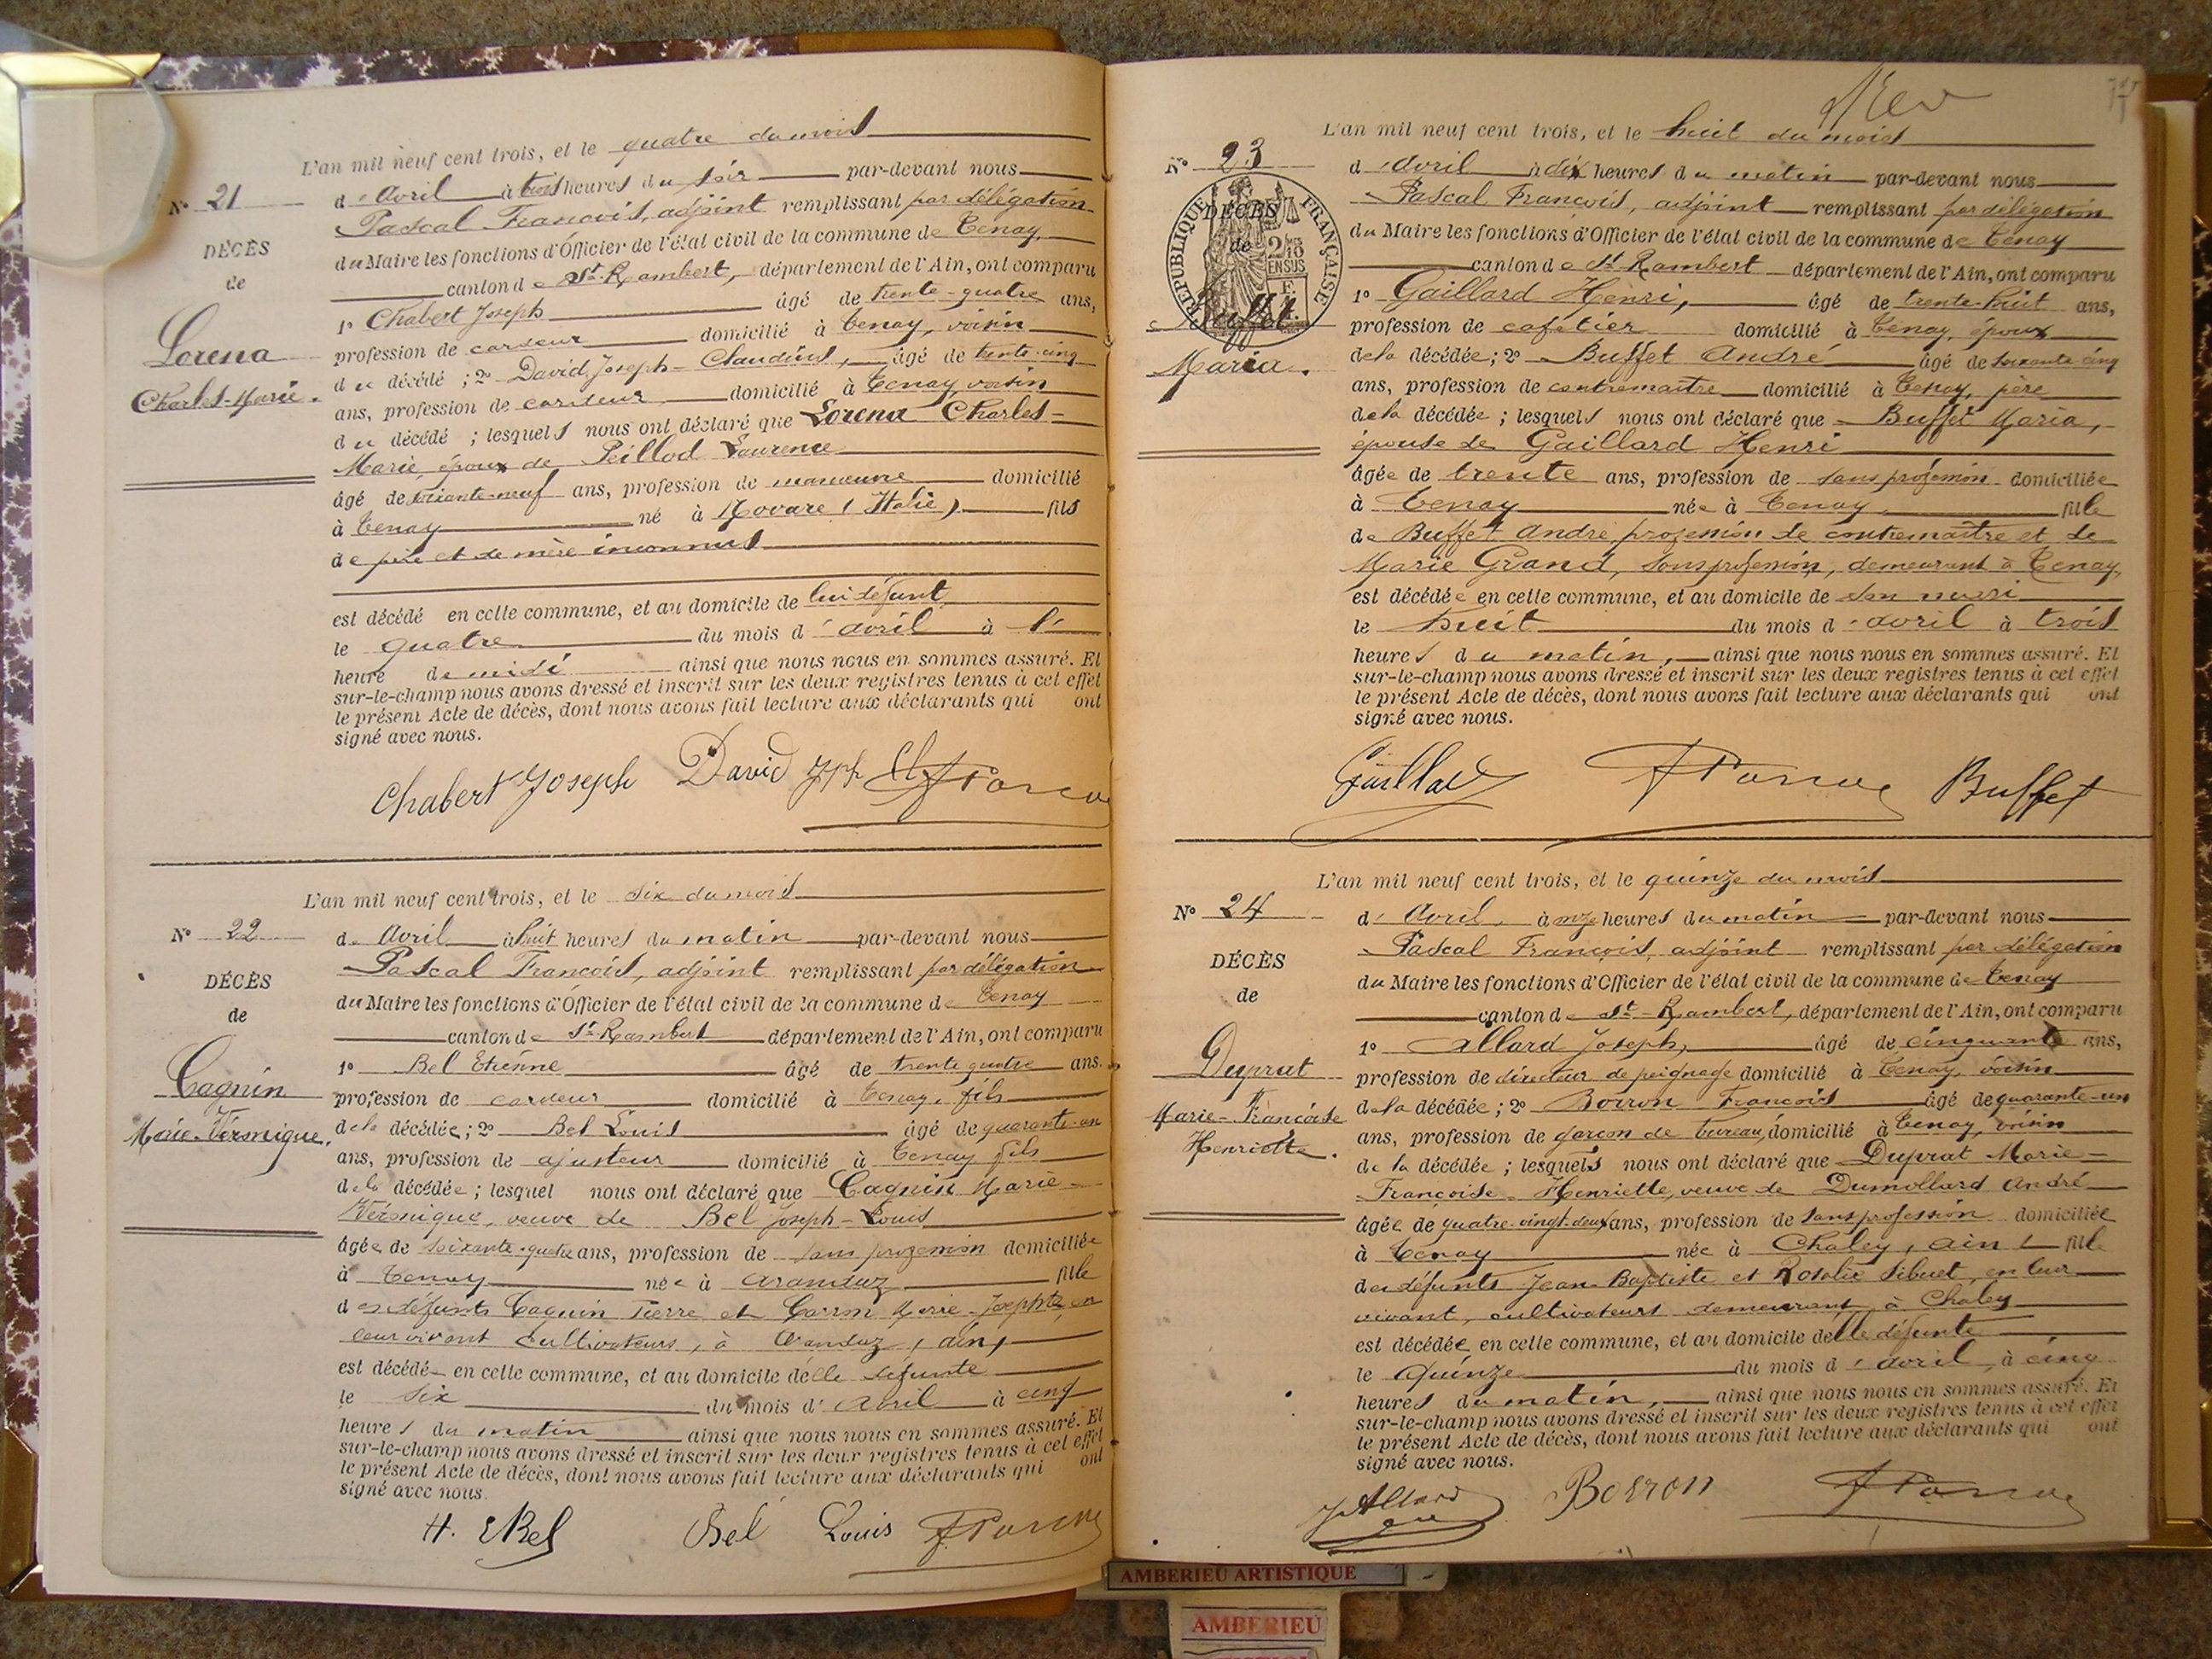 L'an mil neuf cent trois, et le quatre du mois
N° 21
d'Avril à trois heures du soir par-devant nous
Pascal François, adjoint remplissant par délégation
DÉCÈS
du Maire les fonctions d'Officier de l'état civil de la commune de Tenay
de
canton de St-Rambert, département de l'Ain, ont comparu
1° Chabert Joseph âgé de trente-quatre ans,
Lorena
profession de cardeur domicilié à Tenay, voisin
Charles-Marie.
du décédé ; 2° David, Joseph-Claudius, âgé de trente-cinq
ans, profession de cardeur domicilié à Tenay, voisin
du décédé ; lesquels nous ont déclaré que Lorena Charles-
Marie, époux de Peillod Laurence
âgé de soixante-neuf ans, profession de manœuvre domicilié
à Tenay né à Novare (Italie) fils
de père et de mère inconnus
est décédé en cette commune, et au domicile de lui défunt
le quatre du mois d'avril à l'
heure de midi ainsi que nous nous en sommes assuré. Et
sur-le-champ nous avons dressé et inscrit sur les deux registres tenus à cet effet
le présent Acte de décès, dont nous avons fait lecture aux déclarants qui ont
signé avec nous.
Chabert Joseph David Jph Cl
L'an mil neuf cent trois, et le six du mois
N° 22
d'Avril à huit heures du matin par-devant nous
Pascal François, adjoint remplissant par délégation
DÉCÈS
du Maire les fonctions d'Officier de l'état civil de la commune de Tenay
de
canton de St-Rambert département de l'Ain, ont comparu
1° Bel Etienne âgé de trente quatre ans.
Caquin
profession de cardeur domicilié à Tenay, fils
Marie-Véronique.
de la décédée ; 2° Bel Louis âgé de quarante-un
ans, profession de ajusteur domicilié à Tenay fils
de la décédée ; lesquel nous ont déclaré que Caquin Marie-
Véronique, veuve de Bel Joseph-Louis
âgée de soixante-quatre ans, profession de sans profession domiciliée
à Tenay née à Aranduz fille
des défunts Caquin Pierre et Carron Marie-Josephte, en
leur vivant cultivateurs, à Aranduz (ain)
est décédée en cette commune, et au domicile d'elle défunte
le six du mois d'Avril à cinq
heures du matin ainsi que nous nous en sommes assuré. Et
sur-le-champ nous avons dressé et inscrit sur les deux registres tenus à cet effet
le présent Acte de décès, dont nous avons fait lecture aux déclarants qui ont
signé avec nous.
H. EBel Bel Louis
L'an mil neuf cent trois, et le huit du mois
N° 23
d'avril à dix heures du matin par-devant nous
Pascal François, adjoint remplissant par délégation
DÉCÈS
de
RÉPUBLIQUE FRANÇAISE
du Maire les fonctions d'Officier de l'état civil de la commune de Tenay
canton de St-Rambert département de l'Ain, ont comparu
1° Gaillard Henri, âgé de trente-huit ans,
Buffet
profession de cafetier domicilié à Tenay, époux
Maria.
de la décédée ; 2° Buffet André âgé de soixante cinq
ans, profession de contremaître domicilié à Tenay, père
de la décédée ; lesquels nous ont déclaré que Buffet Maria,
épouse de Gaillard Henri
âgée de trente ans, profession de sans profession domiciliée
à Tenay née à Tenay fille
de Buffet André profession de contremaître et de
Marie Grand, sans profession, demeurant à Tenay,
est décédée en cette commune, et au domicile de son mari
le huit du mois d'avril à trois
heures du matin, ainsi que nous nous en sommes assuré. Et
sur-le-champ nous avons dressé et inscrit sur les deux registres tenus à cet effet
le présent Acte de décès, dont nous avons fait lecture aux déclarants qui ont
signé avec nous.
Gaillard Buffet
L'an mil neuf cent trois, et le quinze du mois
N° 24
d'Avril, à onze heures du matin par-devant nous
Pascal François, adjoint remplissant par délégation
DÉCÈS
du Maire les fonctions d'Officier de l'état civil de la commune de Tenay
de
canton de St-Rambert, département de l'Ain, ont comparu
1° Allard Joseph, âgé de cinquante ans,
Duprat
profession de directeur de peignage domicilié à Tenay, voisin
Marie-Françoise
de la décédée ; 2° Boiron François âgé de quarante-un
Henriette.
ans, profession de garçon de bureau, domicilié à Tenay, voisin
de la décédée ; lesquels nous ont déclaré que Duprat Marie-
Françoise-Henriette, veuve de Dumollard André
âgée de quatre-vingt-deux ans, profession de sans profession domiciliée
à Tenay née à Chaley (ain) fille
des défunts Jean Baptiste et Rosalie Sibuet, en leur
vivant, cultivateurs demeurant à Chaley
est décédée en cette commune, et au domicile d'elle défunte
le quinze du mois d'avril à cinq
heures du matin, ainsi que nous nous en sommes assuré. Et
sur-le-champ nous avons dressé et inscrit sur les deux registres tenus à cet effet
le présent Acte de décès, dont nous avons fait lecture aux déclarants qui ont
signé avec nous.
J Allard Boiron
AMBERIEU ARTISTIQUE
AMBERIEU